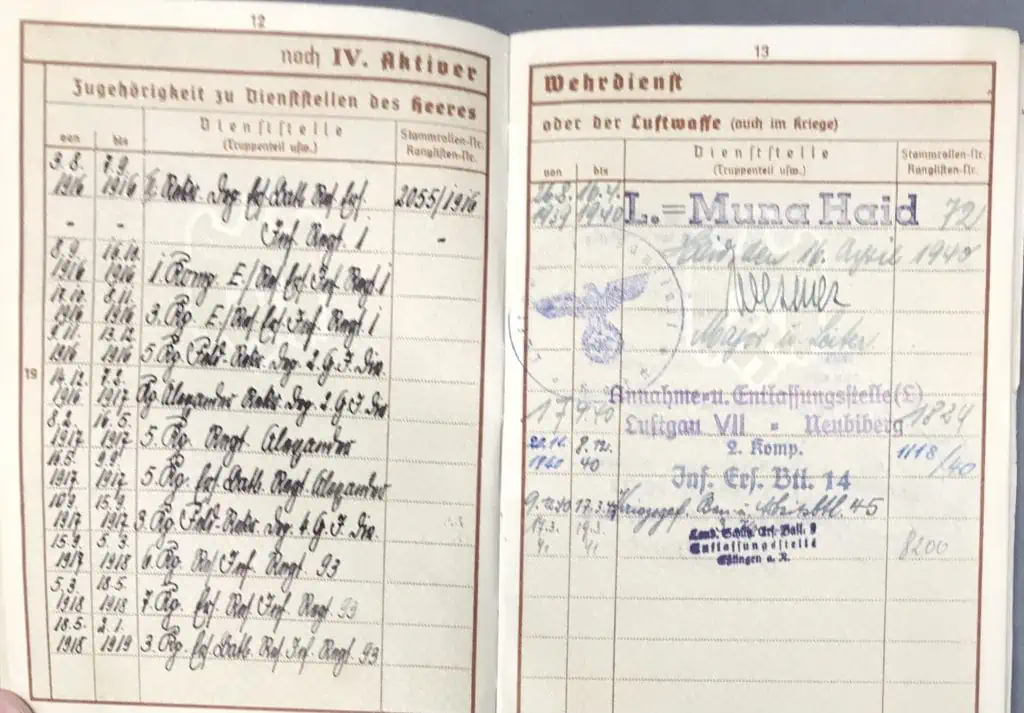 12
noch IV. Aktiver
Zugehörigkeit zu Dienststellen des Heeres
von
bis
Dienststelle
(Truppenteil usw.)
Stammrollen-Nr.
Ranglisten-Nr.
3.8. 1916
7.9. 1916
Rekr. Dep. Ers. Batl. Res. Ers.
2055/1916
- - Inf. Regt. 1 -
8.9. 1916
16.10. 1916
1. Komp. E/Res. Ers. Inf. Regt. 1
17.10. 1916
8.11. 1916
3. Kp. E/Res. Ers. Inf. Regt. 1
9.11. 1916
13.12. 1916
5. Kp. Feld-Rekr. Dep. 2. G. J. Div.
14.12. 1916
7.2. 1917
Kp. Alexander Rekr. Dep. 2. G. J. Div.
8.2. 1917
16.5. 1917
5. Kp. Regt. Alexander
16.5. 1917
9.9. 1917
5. Kp. Ers. Batl. Regt. Alexander
10.9. 1917
15.9. 1917
3. Kp. Feld-Rekr. Dep. 4. G. J. Div.
15.9. 1917
5.3. 1918
6. Kp. Res. Inf. Regt. 93
5.3. 1918
18.5. 1918
7. Kp. Ers. Res. Inf. Regt. 93
18.5. 1918
2.1. 1919
3. Kp. Ers. Batl. Res. Inf. Regt. 93
19
13
Wehrdienst
oder der Luftwaffe (auch im Kriege)
von
bis
Dienststelle
(Truppenteil usw.)
Stammrollen-Nr.
Ranglisten-Nr.
26.8. 1939
16.4. 1940
L.=Muna Haid
72
Haid, den 16. April 1940
Major u. Leiter
Annahme- u. Entlassungsstelle (L)
17 4 40
Luftgau VII - Neubiberg
1824
2. Komp.
1940
8.12. 40
1118/40
Inf. Ers. Btl. 14
9.12.40
17.3.41
Kriegsgef. Bau- u. Arb. Btl. 45
17.3. 41
19.3. 41
Land. Schütz. Ers. Batl.
Entlassungsstelle
Eßlingen a. N.
8200